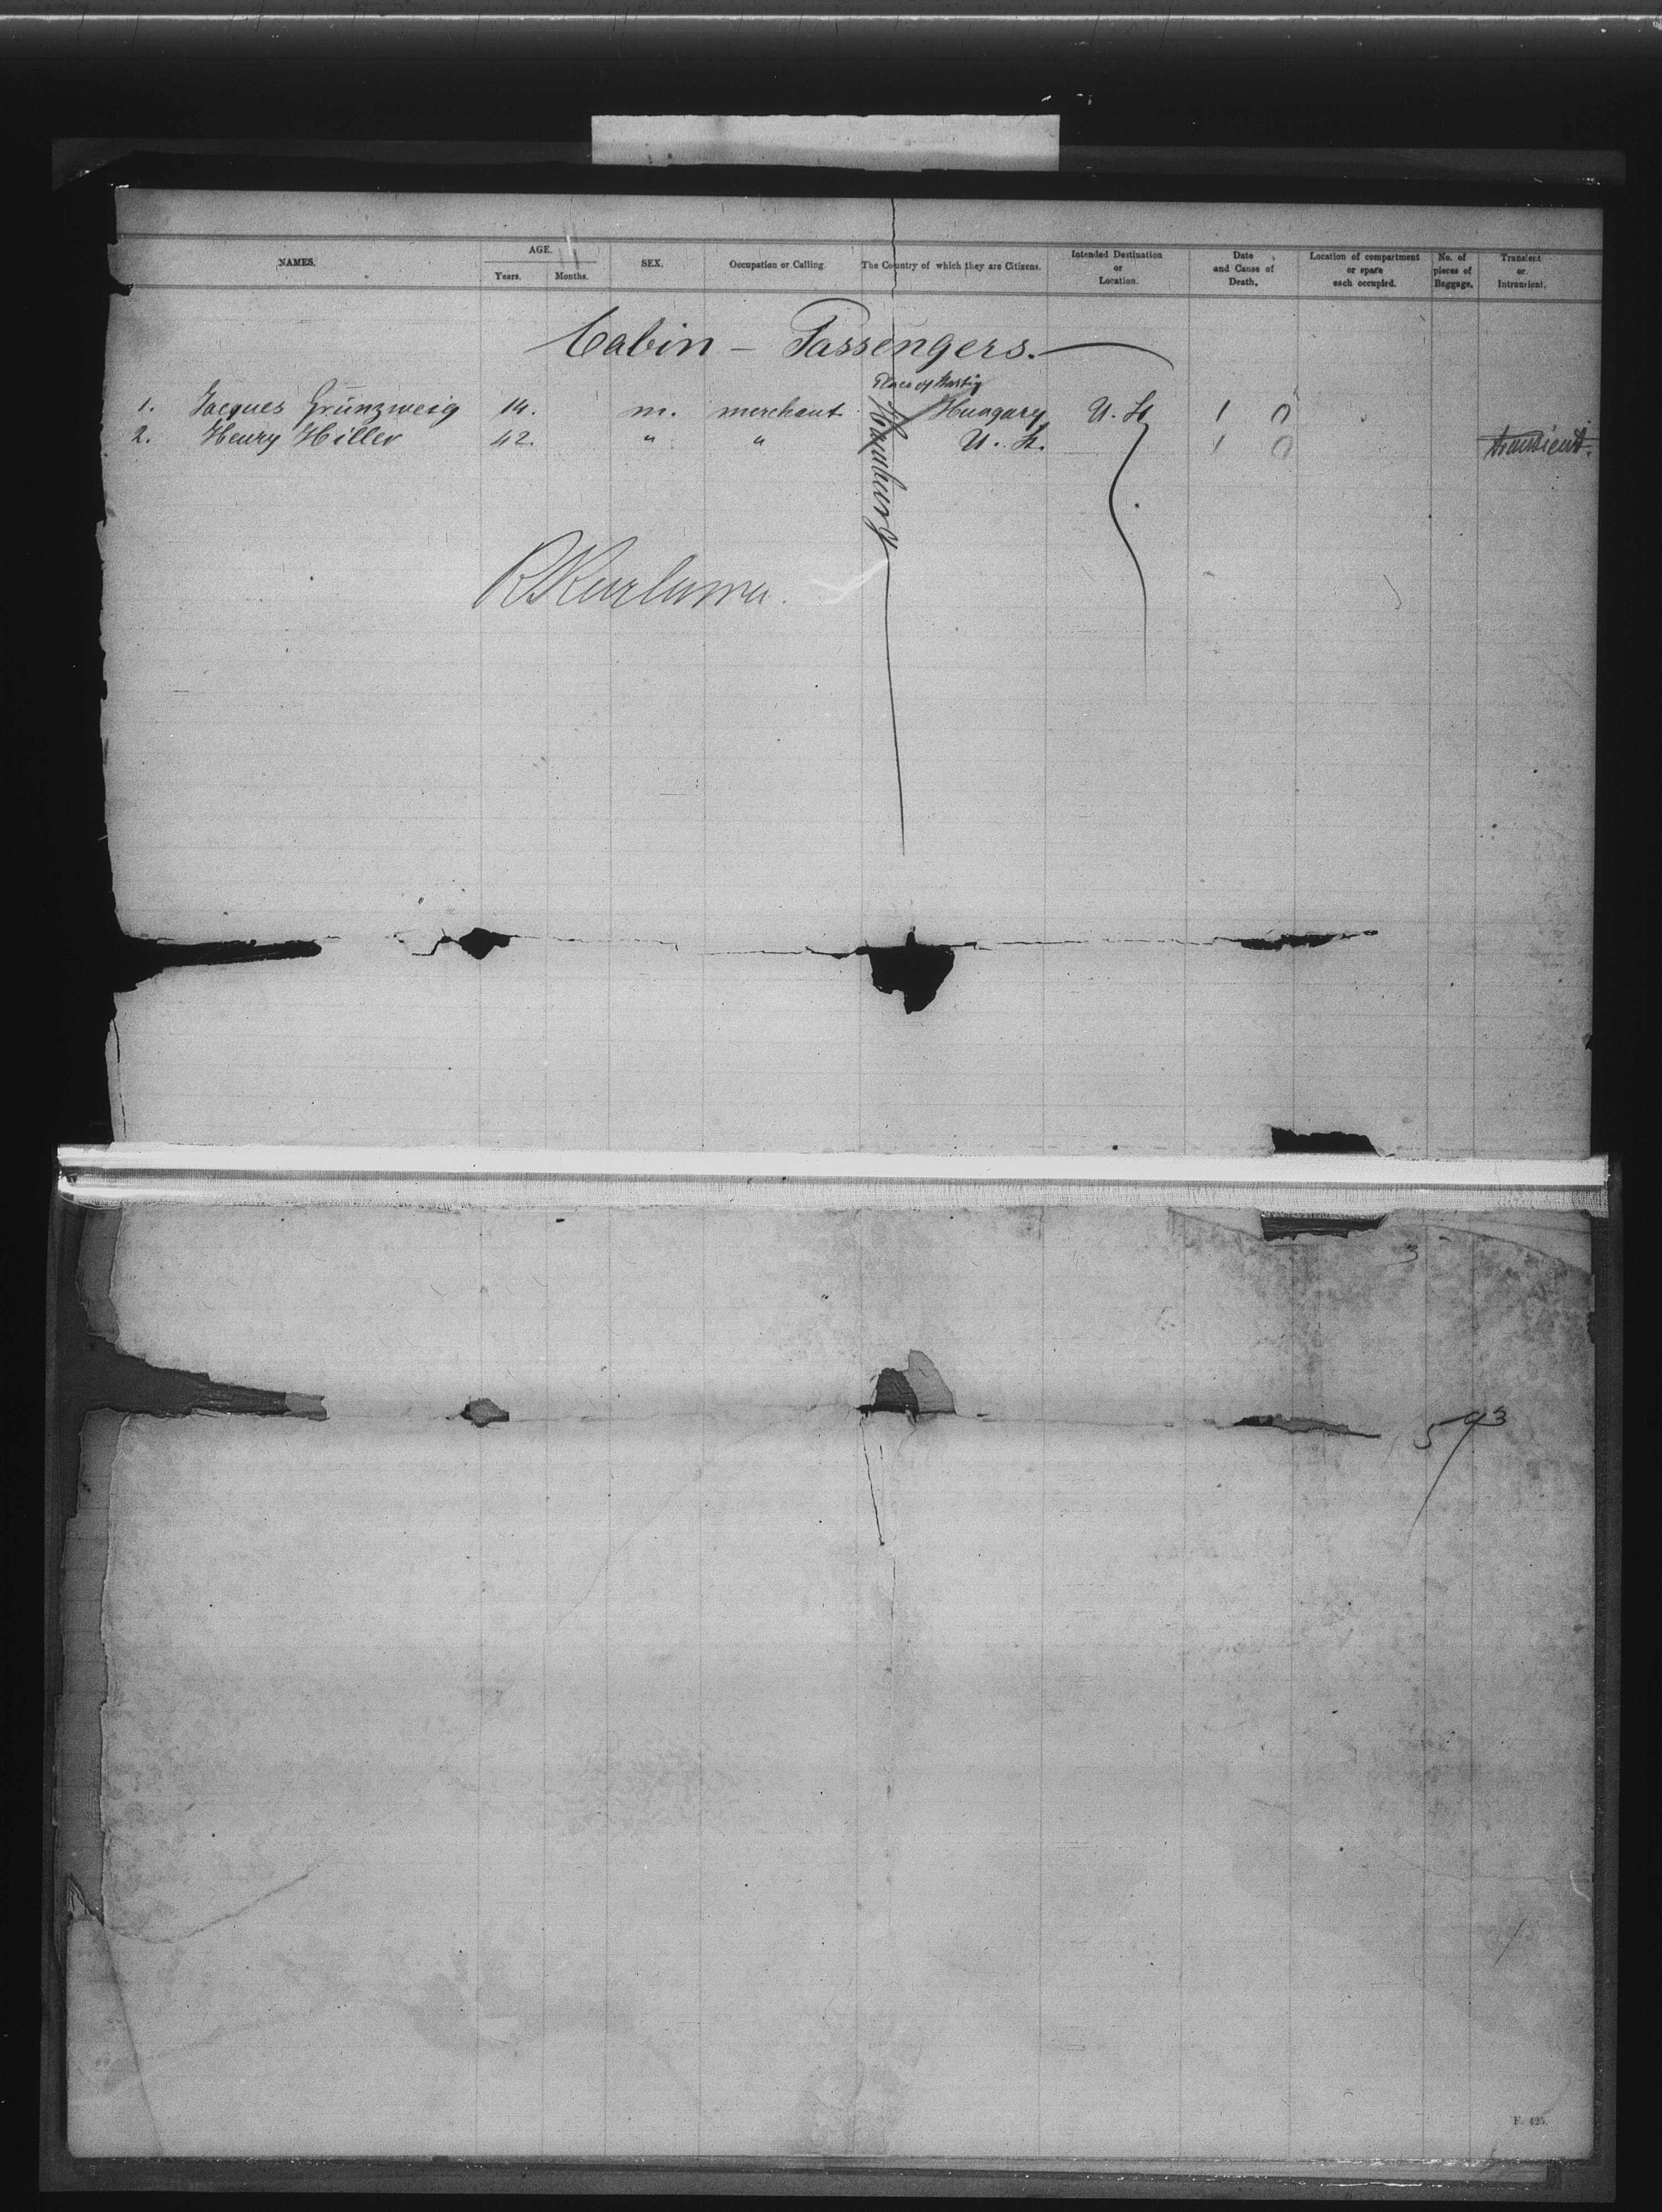 NAMES. AGE. Years. Months. SEX. Occupation or Calling. The Country of which they are Citizens. Intended Destination or Location. Date and Cause of Death. Location of compartment or spare each occupied. No. of pieces of Baggage. Transient or Intransient.
Cabin - Passengers.
Place of
1. Jacques Grünzweig 14. m. merchant Hungary U. St. 1 0
2. Henry Hiller 42. " " U. St. 1 0 transient.
Hamburg
593
F. 425.